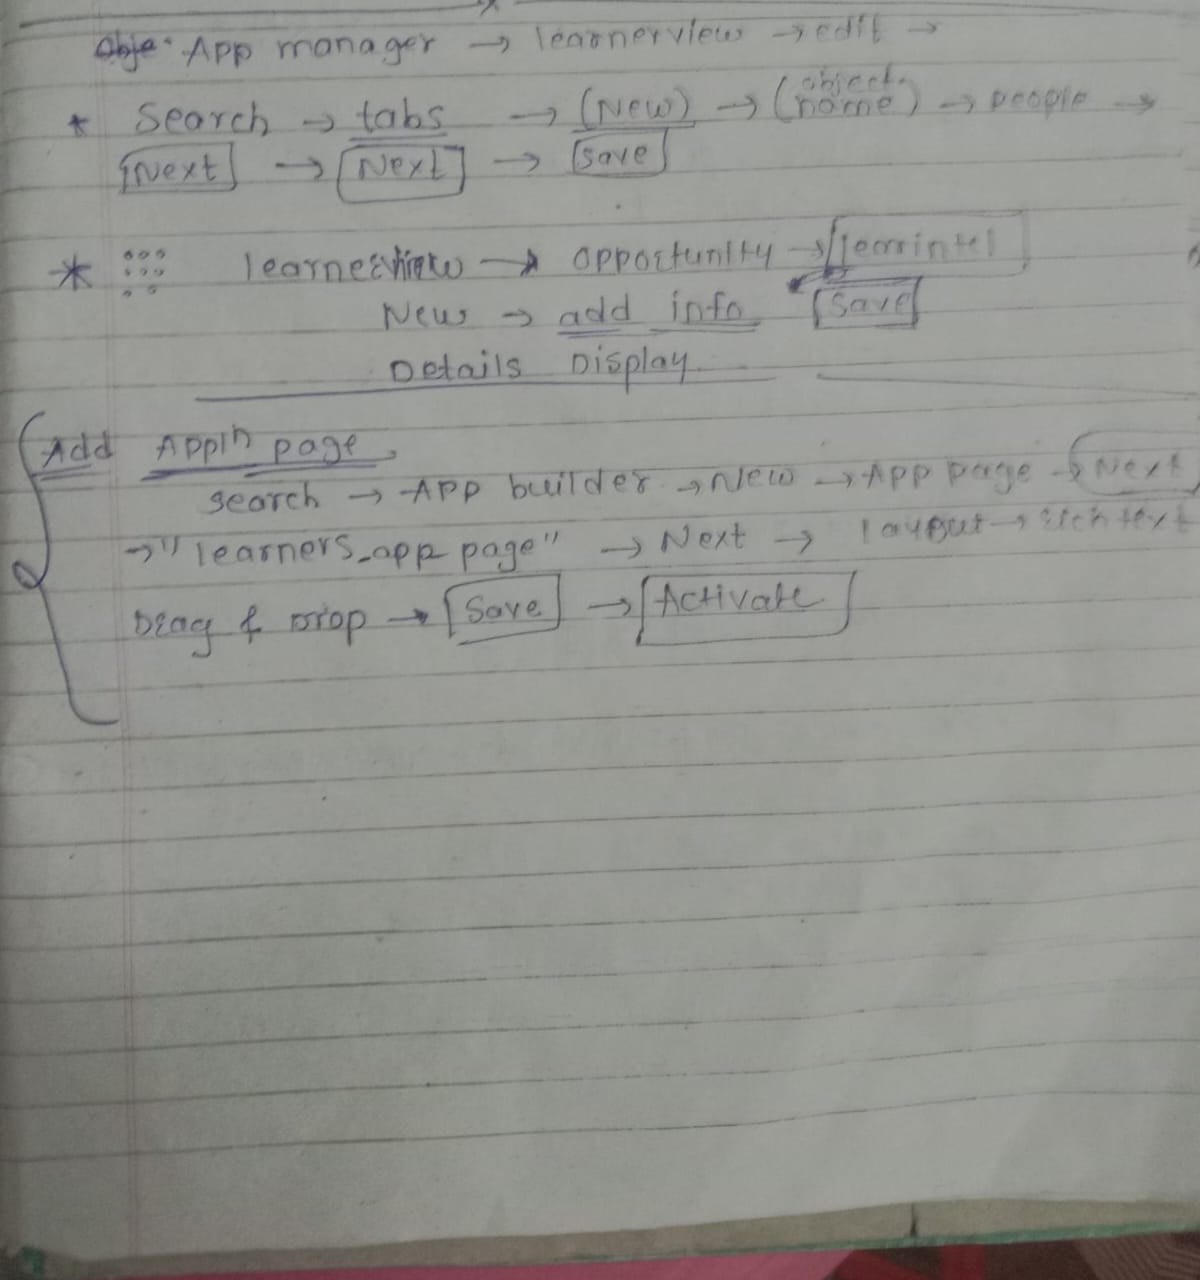 App manager → learnerview → edit →
* Search → tabs → (New) → (object name) → people →
Next → Next → Save
* learnerview → opportunity →
New → add info Save
Details Display
Add Appln page
search → App builder → New → App page → Next
→ "learners_app page" → Next → layout → rich text
Drag & Drop → Save → Activate